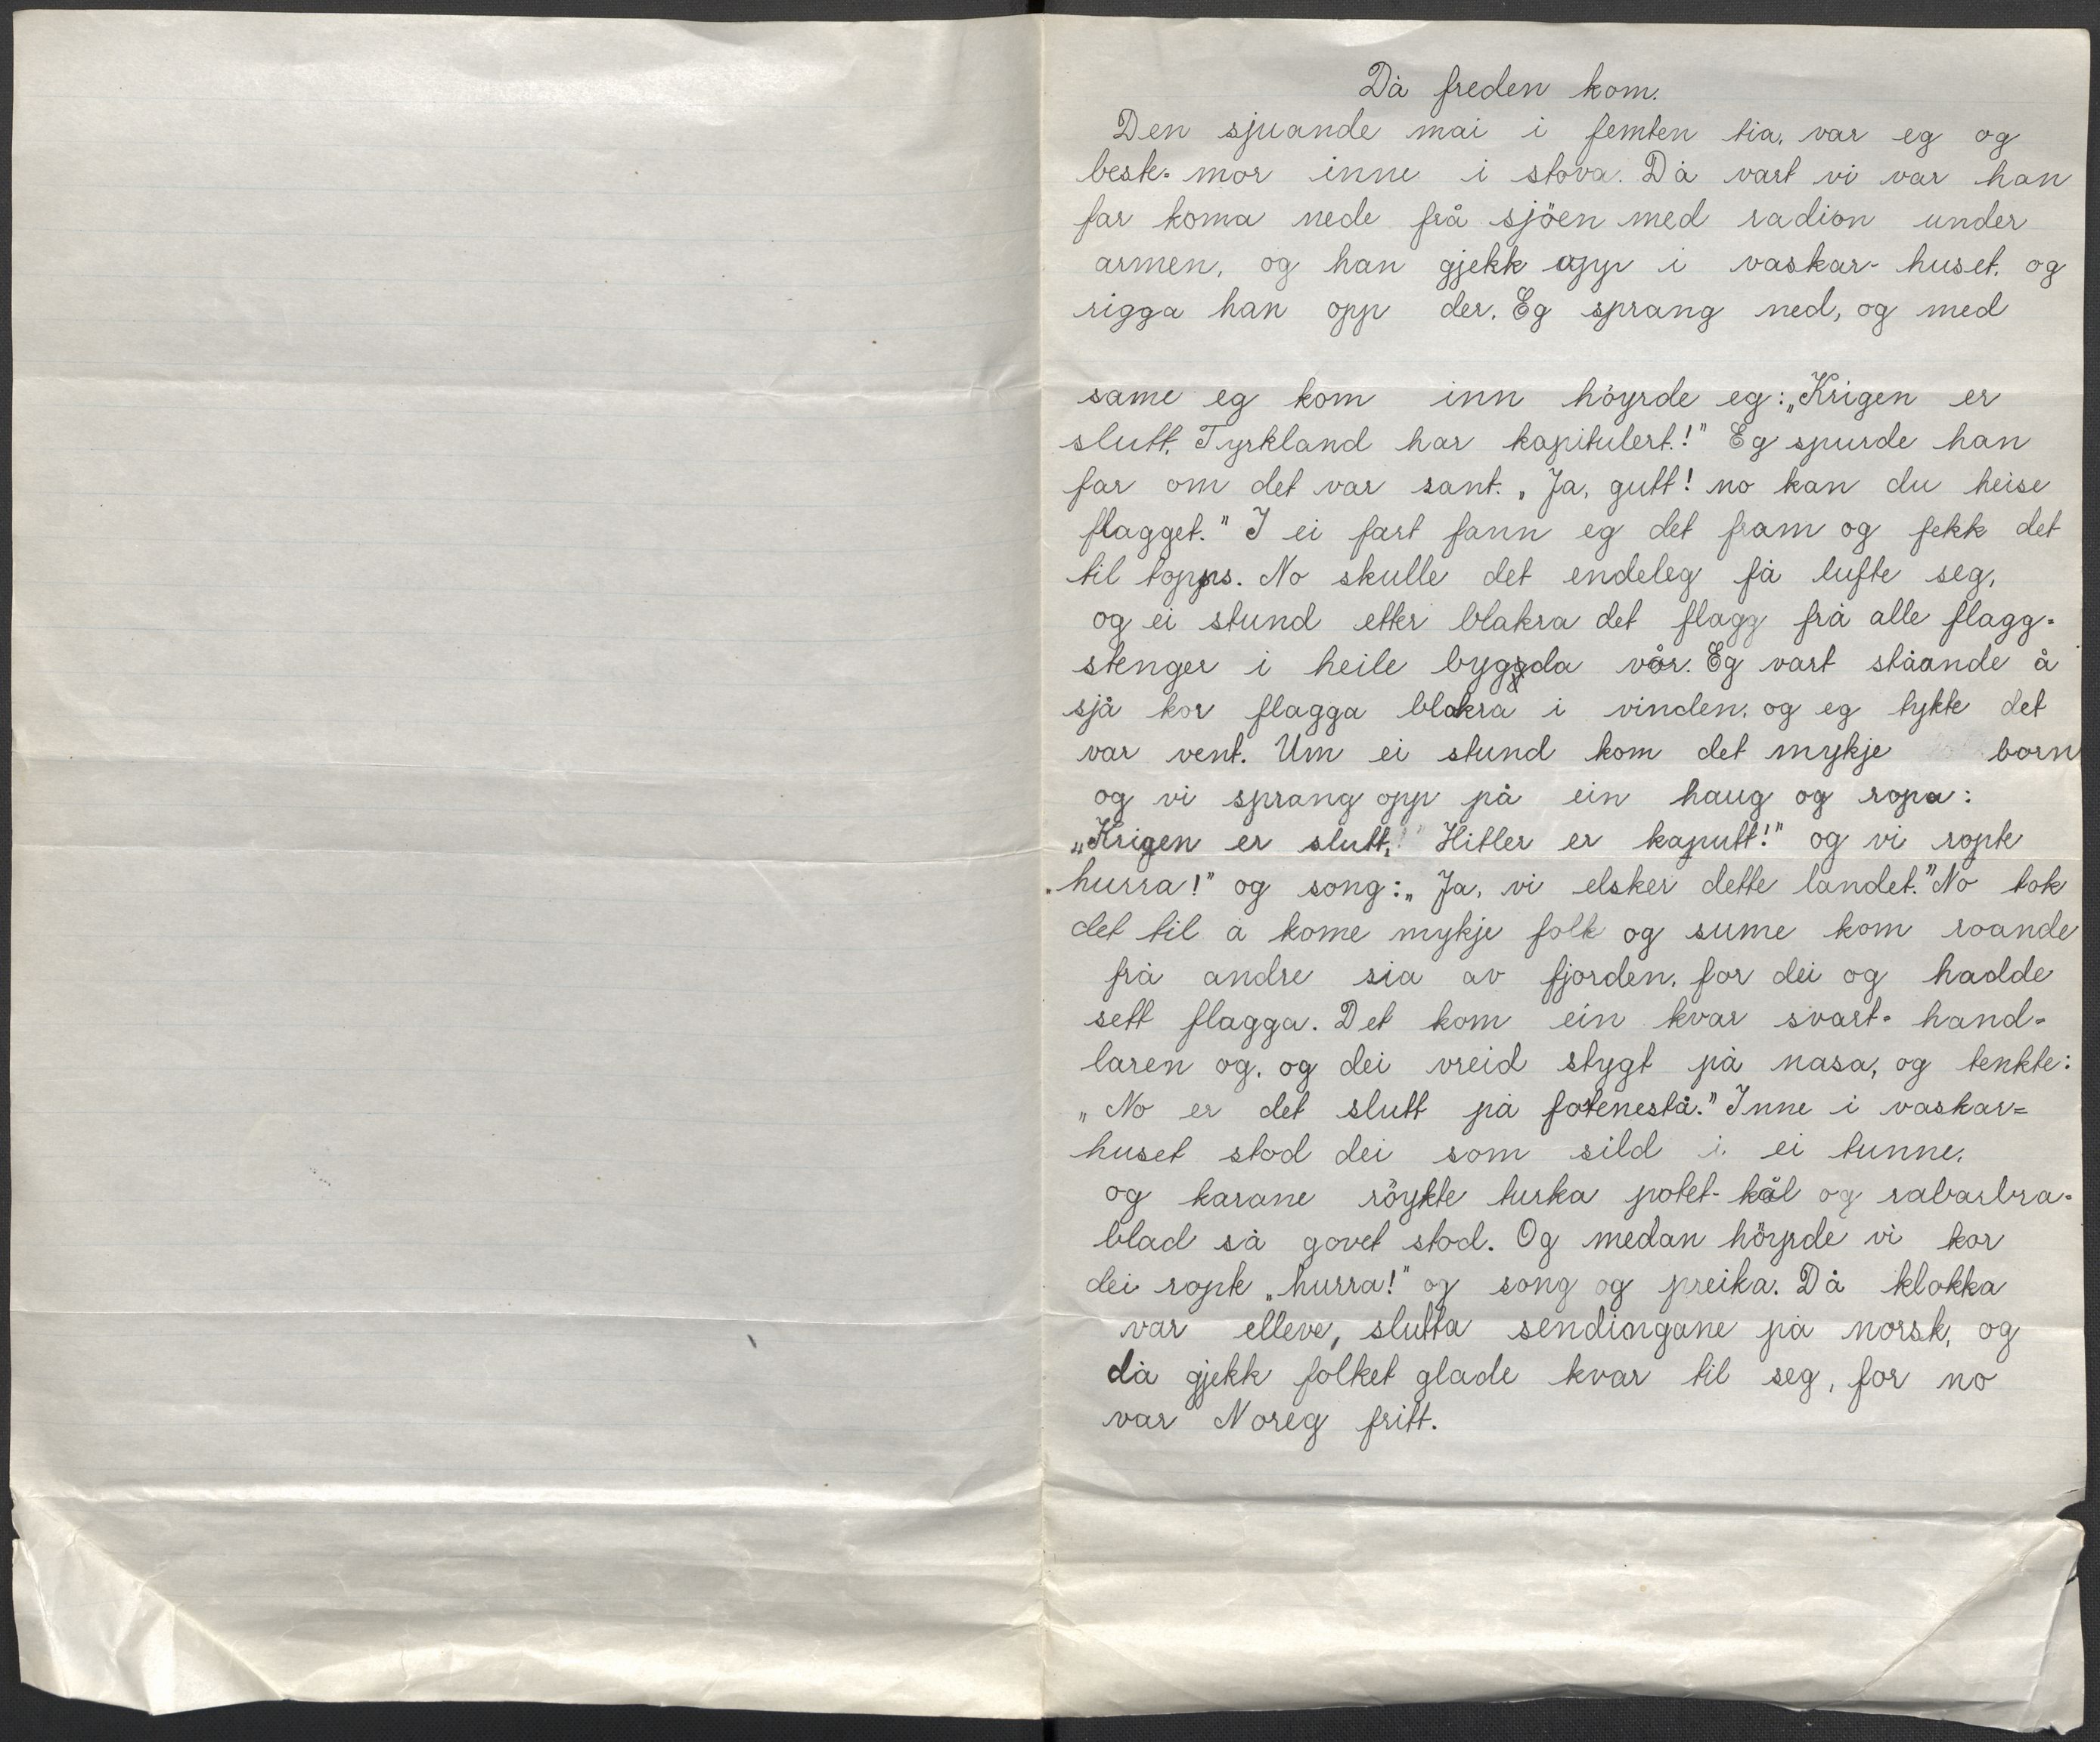 Då freden kom.
Den sjuande mai i femten tia, var eg og
beste-mor inne i stova. Då vart vi var han
far koma nede frå sjöen med radion under
armen, og han gjekk opp i vaskar-huset, og
rigga han opp der. Eg sprang ned, og med
same eg kom inn höyrde eg: „Krigen er
slutt, Tyrkland har kapitulert!" Eg spurde han
far om det var sant. „Ja, gutt! no kan du heise
flagget." I ei fart fann eg det fram og fekk det
til topps. No skulle det endeleg få lufte seg,
og ei stund etter blakra det flagg frå alle flagg-
stenger i heile bygda vår. Eg vart ståande å
sjå kor flagga blakra i vinden, og eg tykte det
var vent. Um ei stund kom det mykje born
og vi sprang opp på ein haug og ropa:
„Krigen er slutt, Hitler er kaputt!" og vi ropte
„hurra!" og song: „Ja, vi elsker dette landet." No tok
det til å kome mykje folk og sume kom roande
frå andre sia av fjorden, for dei og hadde
sett flagga. Det kom ein kvar svart-hand-
laren og, og dei vreid stygt på nasa, og tenkte:
„No er det slutt på fotenestå." Inne i vaskar-
huset stod dei som sild i ei tunne,
og karane röykte turka potet-kål og rabarbra-
blad så govet stod. Og medan höyrde vi kor
dei ropte „hurra!" og song og preika. Då klokka
var elleve, slutta sendingane på norsk, og
då gjekk folket glade kvar til seg, for no
var Noreg fritt.